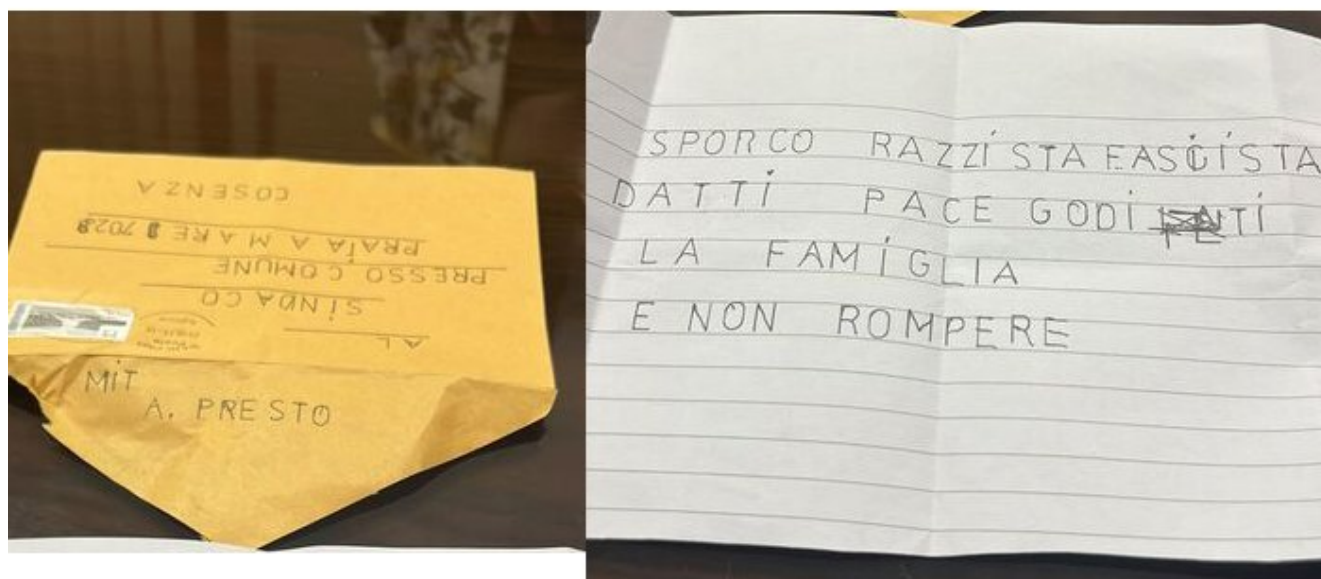 AL
SINDACO
PRESSO COMUNE
PRAIA A MARE 87028
COSENZA
MIT
A. PRESTO
SPORCO RAZZISTA FASCISTA
DATTI PACE GODITI
LA FAMIGLIA
E NON ROMPERE